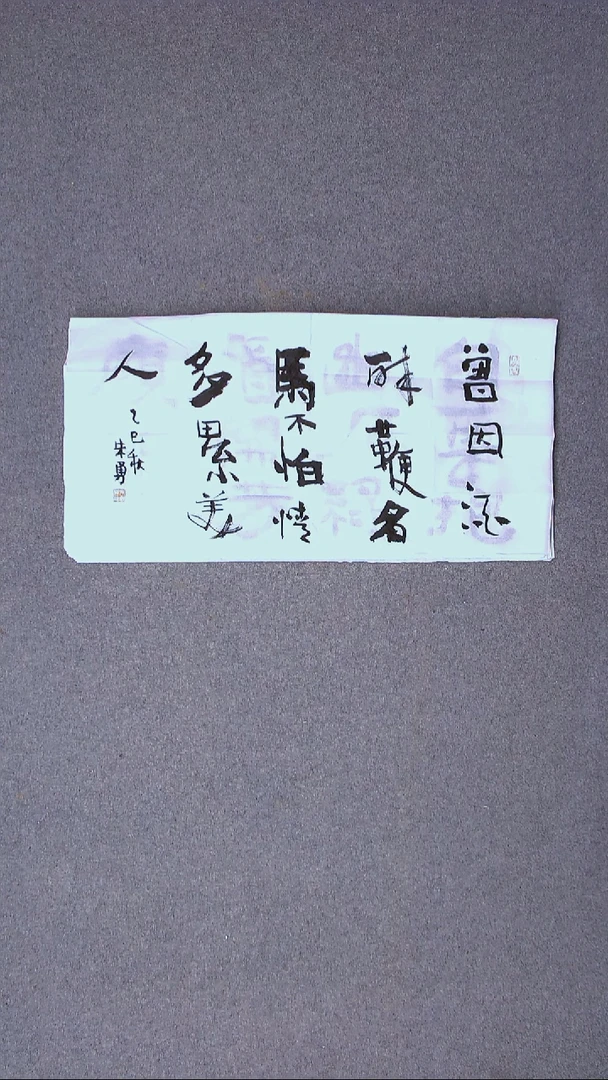 曾因酒
醉鞭名
馬不怕情
多累美
人
乙巳秋
朱勇